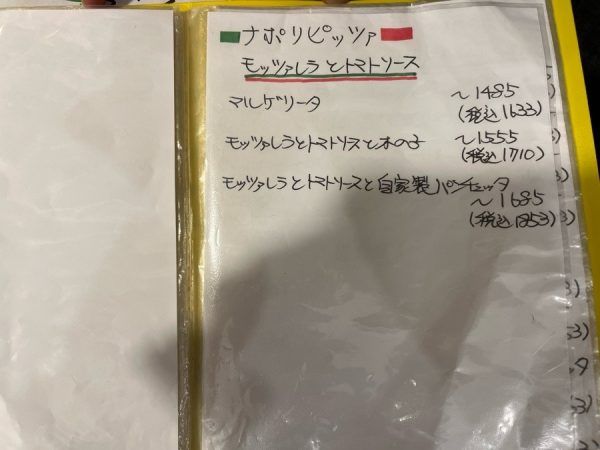 ナポリピッツァ
モッツァレラとトマトソース
マルゲリータ ~1485
(税込1633)
モッツァレラとトマトソースと木の子 ~1555
(税込1710)
モッツァレラとトマトソースと自家製パンチェッタ
~1685
(税込1853)